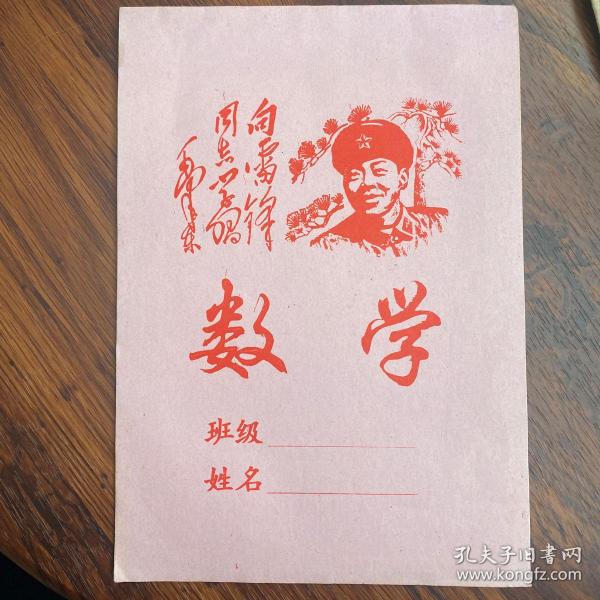 向雷锋
同志学习
毛泽东
数学
班级
姓名
孔夫子旧书网
www.kongfz.com